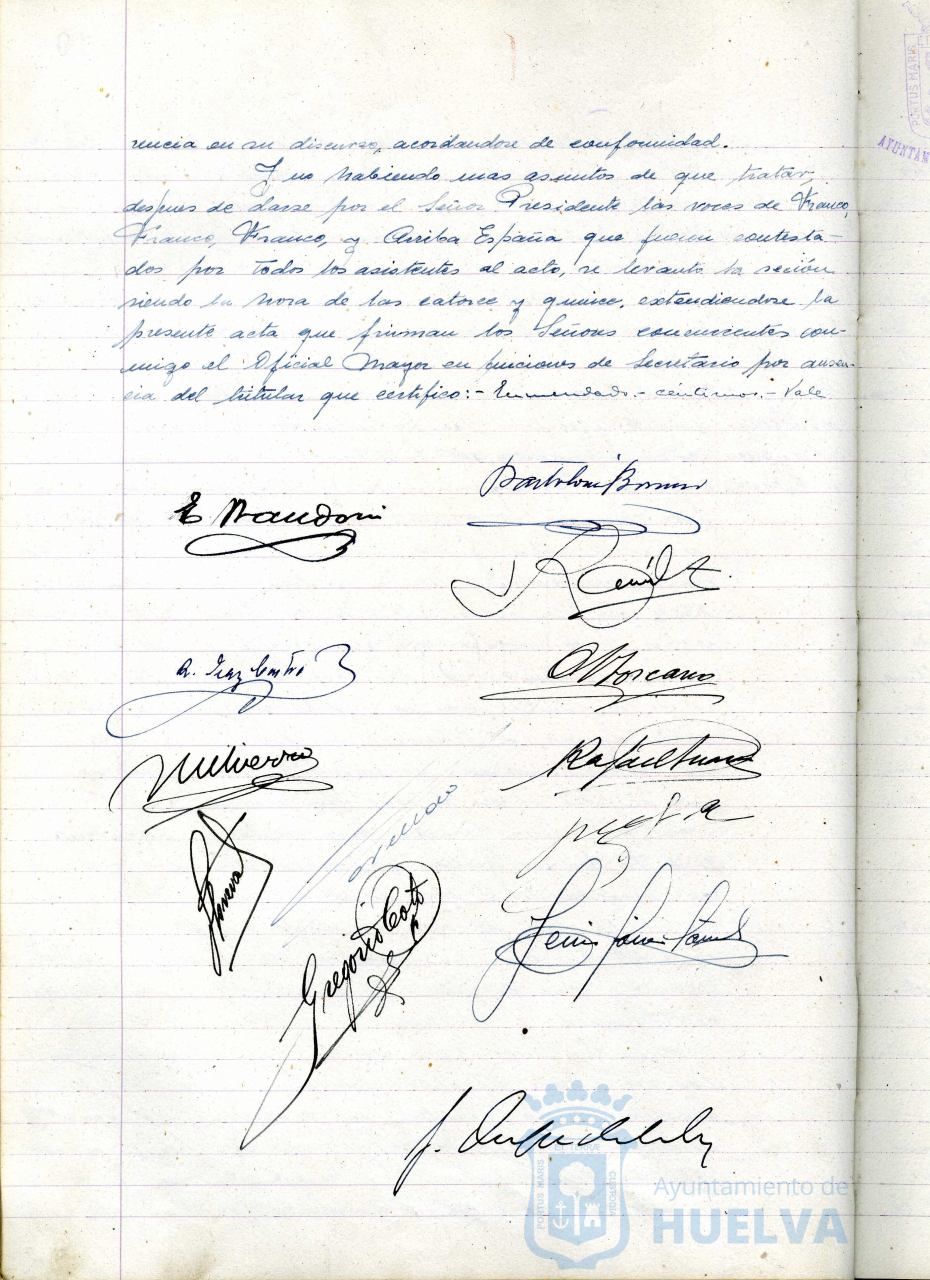 rencia en su discurso, acordandose de conformidad.
Y no habiendo mas asuntos de que tratar,
despues de darse por el Señor Presidente las voces de Franco,
Franco, Franco, y Arriba España que fueron contesta-
dos por todos los asistentes al acto, se levanto la seción
siendo la hora de las catorce y quince, extendiendose la
presente acta que firman los Señores concurrentes con-
migo el Oficial Mayor en funciones de Secretario por ausen-
cia del titular que certifico:- Enmendado.- centimos.- Vale
R. Diaz
Rafael
Gregorio
PORTUS MARIS
CUSTODIA
Ayuntamiento de
HUELVA
PORTUS MARIS
AYUNTAM